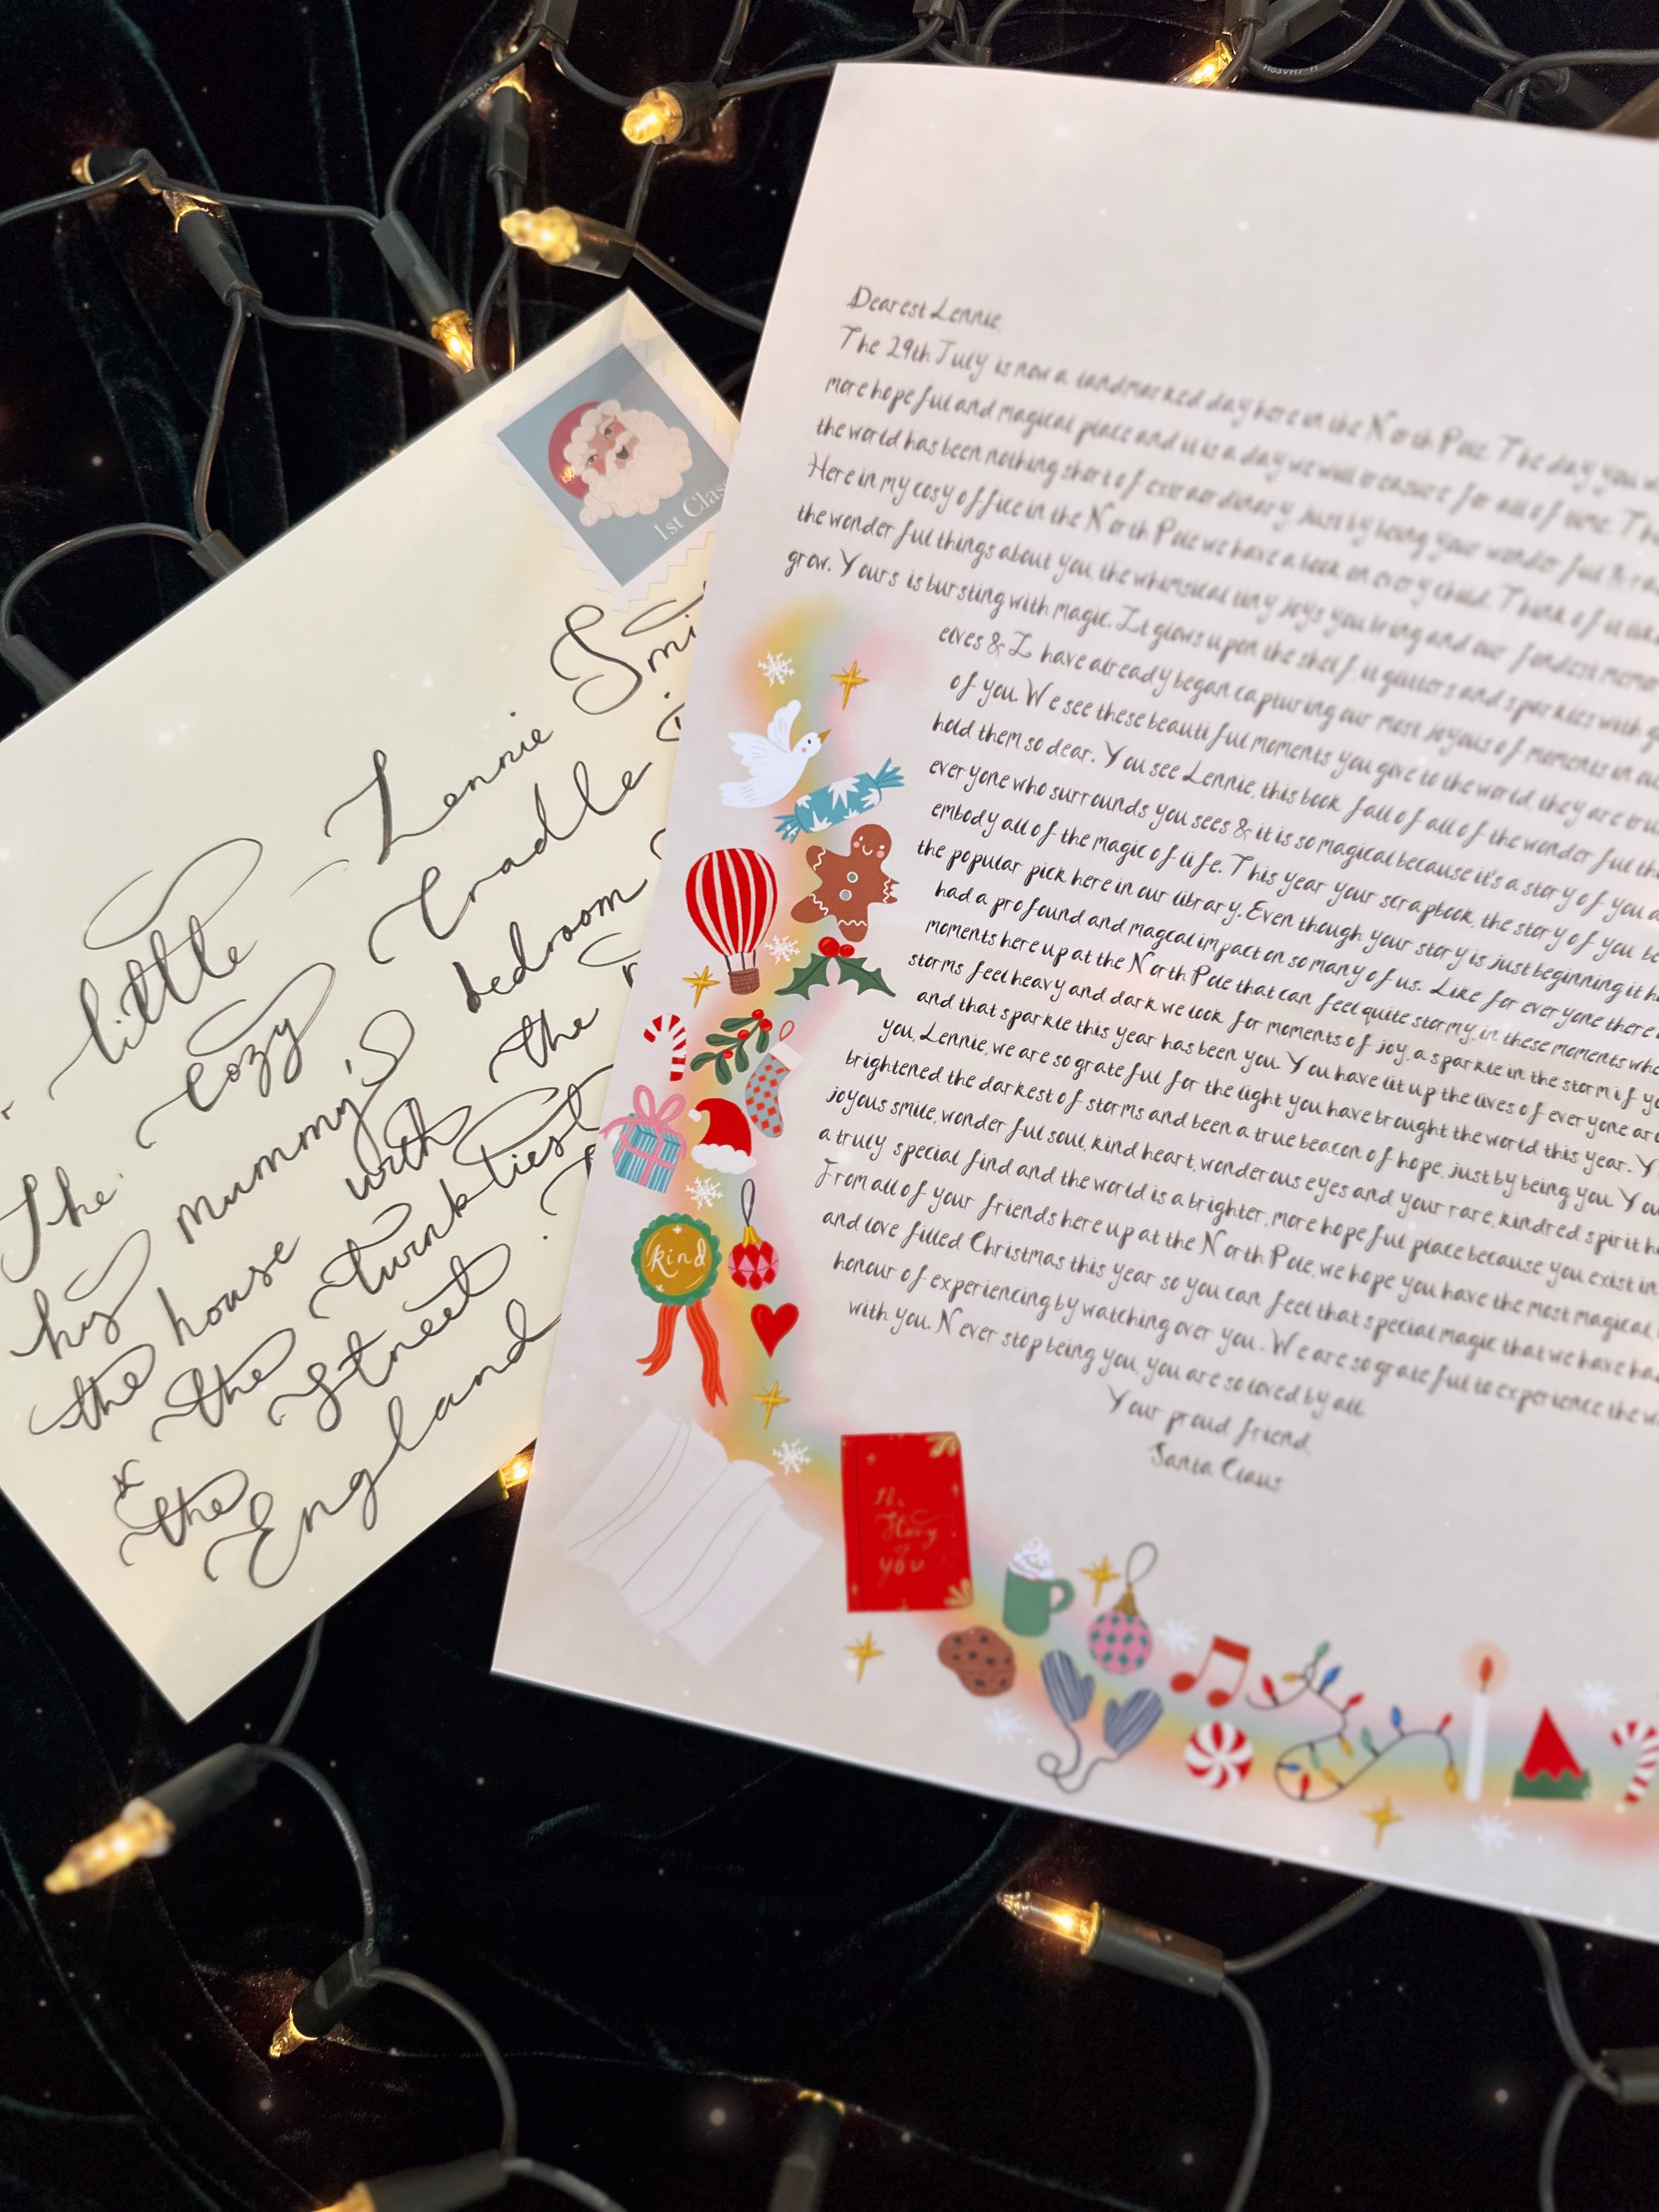 1st Clas
little Lennie Smi
The cozy Cradle i
his mummy's bedroom
the house with the r
& the twinkliest
Street
the England
Dearest Lennie,
The 29th July is now a landmarked day here in the North Pole. The day you w
more hopeful and magical place and it is a day we will treasure for all of time. Th
the world has been nothing short of extraordinary just by being your wonderful & ra
Here in my cosy office in the North Pole we have a book on every child. Think of it like
the wonderful things about you, the whimsical tiny joys you bring and our fondest memor
grow. Yours is bursting with magic. It glows upon the shelf, it glitters and sparkles with g
elves & I have already began capturing our most joyous of moments in ou
of you. We see these beautiful moments you give to the world, they are tru
hold them so dear. You see Lennie, this book fall of all of the wonderful thi
everyone who surrounds you sees & it is so magical because it's a story of you a
embody all of the magic of life. This year your scrapbook, the story of you be
the popular pick here in our library. Even though your story is just beginning it h
had a profound and magcal impact on so many of us. Like for everyone there
moments here up at the North Pole that can feel quite stormy, in these moments whe
storms feel heavy and dark we look for moments of joy, a sparkle in the storm if yo
and that sparkle this year has been you. You have lit up the lives of everyone aro
you, Lennie, we are so grateful for the light you have brought the world this year. Y
brightened the darkest of storms and been a true beacon of hope, just by being you. You
joyous smile, wonderful soul, kind heart, wonderous eyes and your rare, kindred spirit h
a truly special find and the world is a brighter, more hopeful place because you exist in
From all of your friends here up at the North Pole, we hope you have the most magical
and love filled Christmas this year so you can feel that special magic that we have ha
honour of experiencing by watching over you. We are so grateful to experience the w
with you. Never stop being you, you are so loved by all.
Your proud friend,
Santa Claus
kind
The
Story
of
you